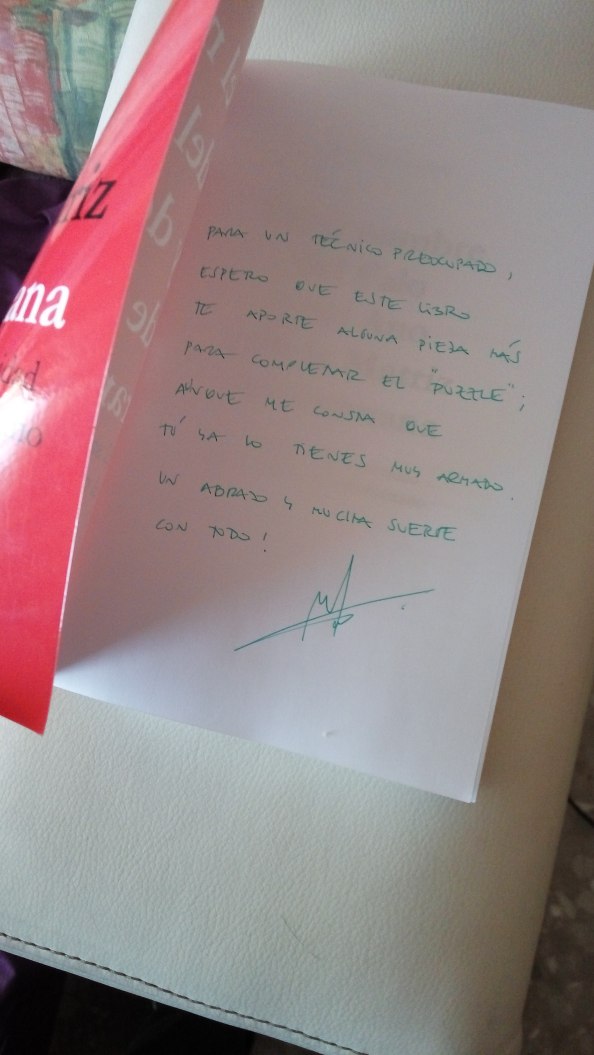 PARA UN TÉCNICO PREOCUPADO,
ESPERO QUE ESTE LIBRO
TE APORTE ALGUNA PIEZA MÁS
PARA COMPLETAR EL "PUZZLE";
AUNQUE ME CONSTA QUE
TÚ YA LO TIENES MUY ARMADO.
UN ABRAZO Y MUCHA SUERTE
CON TODO!
iz
ana